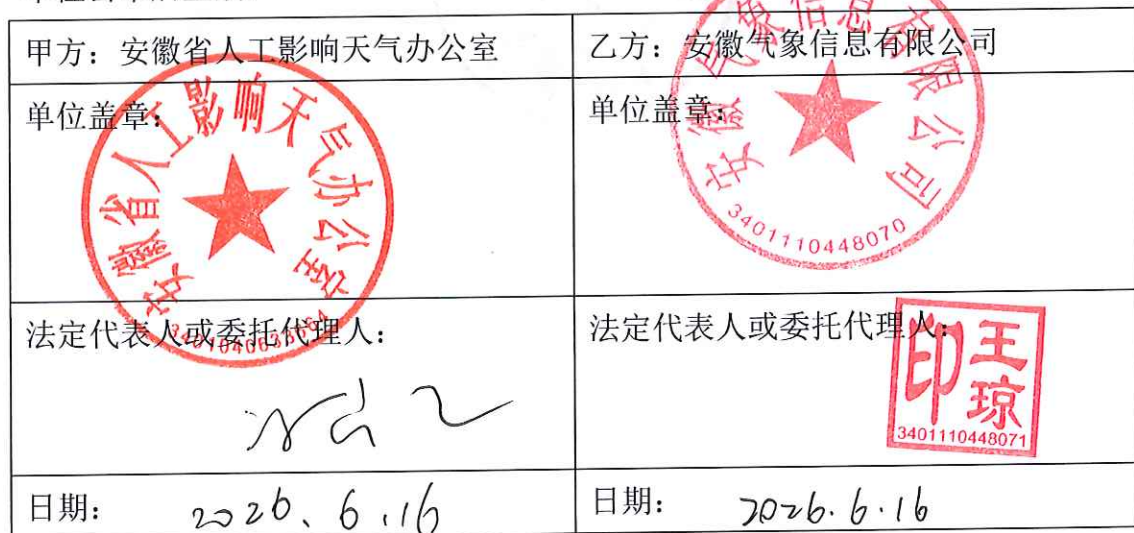 甲方：安徽省人工影响天气办公室
乙方：安徽气象信息有限公司
单位盖章：
安徽省人工影响天气办公室
单位盖章：
安徽气象信息有限公司
3401110448070
法定代表人或委托代理人：
法定代表人或委托代理人：
王琼印
3401110448071
日期：2026.6.16
日期：2026.6.16